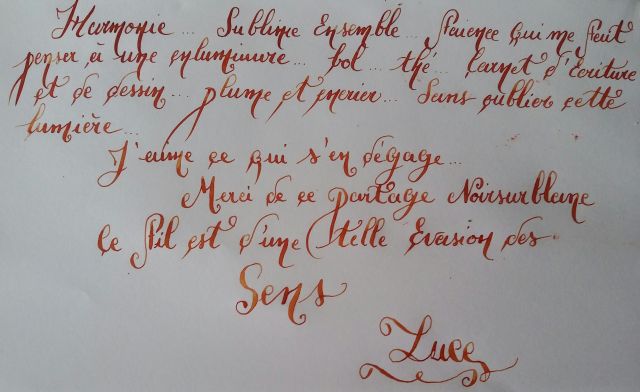 Harmonie... Sublime Ensemble... Faïence qui me fait
penser à une enluminure... bol... thé... Carnet d'Ecriture
et de dessin... plume et encrier... Sans oublier cette
lumière...
J'aime ce qui s'en dégage...
Merci de ce partage Noirsurblanc
Ce fil est d'une telle Evasion des
Sens
Luce